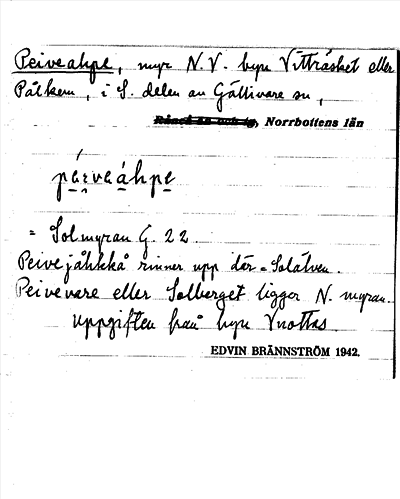 Peiveahpe, myr N.V. byn Vitträsket eller
Pålkem, i S. delen av Gällivare sn,
Råneå sn och tg, Norrbottens län
pei̯veáhpe
= Solmyran G. 22
Peivejåhkkå rinner upp där = Solälven.
Peivevare eller Solberget ligger N. myran.
Uppgiften från byn Vuottas
EDVIN BRÄNNSTRÖM 1942.